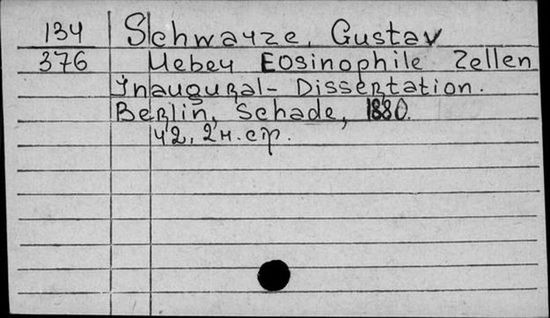 134 Schwarze, Gustav
376 Uebeu Eosinophile Zellen
Inaugural-Dissertation.
Berlin, Schade, 1880.
42, 2н. стр.